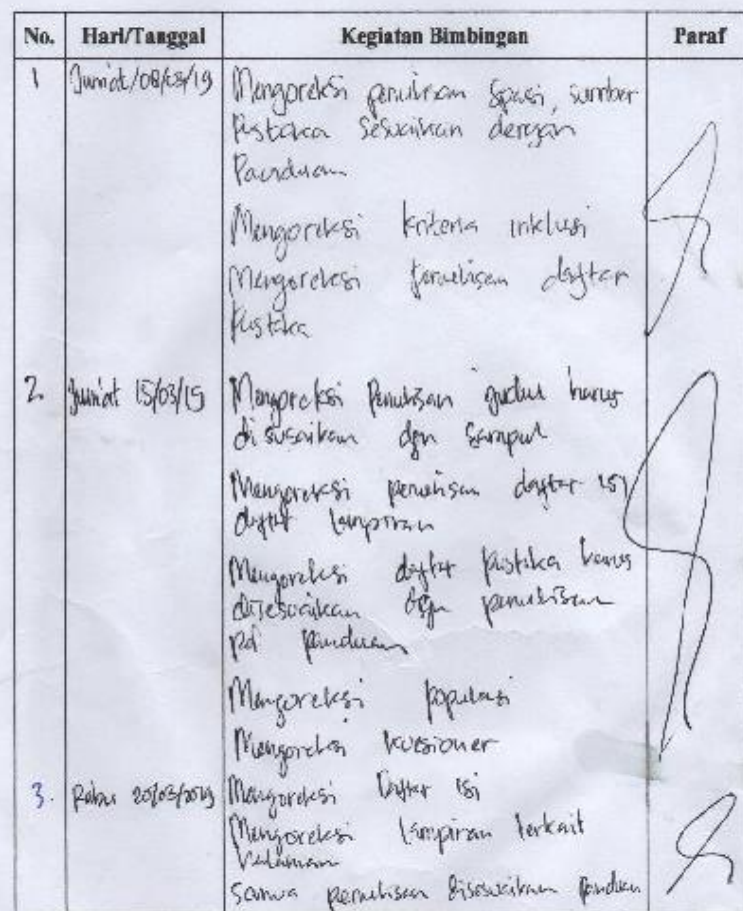 No. Hari/Tanggal Kegiatan Bimbingan Paraf
1 Jum'at/08/03/19 Mengoreksi penulisan spasi, sumber
Pustaka sesuaikan dengan
Panduan
Mengoreksi kriteria inklusi
Mengoreksi penulisan daftar
Pustaka
2. Jum'at 15/03/19 Mengoreksi Penulisan judul harus
di susaikan dgn sampul
Mengoreksi penulisan daftar isi
daftar lampiran
Mengoreksi daftar pustaka harus
disesuaikan dgn penulisan
pd panduan
Mengoreksi populasi
Mengoreksi kuesioner
3. Rabu 20/03/2019 Mengoreksi Daftar isi
Mengoreksi lampiran terkait
halaman
semua penulisan disesuaikan panduan